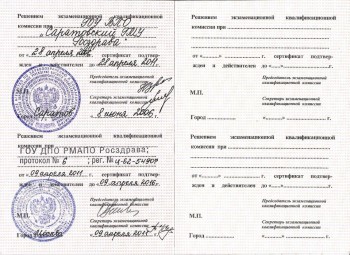 Решением экзаменационной квалификационной
комиссии при ГОУ ВПО
"Саратовский ГМУ
Росздрава"
от «28 апреля 2006, сертификат подтверж-
ден и действителен до «28 апреля 2011.
Председатель экзаменационной
квалификационной комиссии
Секретарь экзаменационной
квалификационной комиссии
М.П.
Город Саратов «8 июня 2006г.
Решением экзаменационной квалификационной
комиссии при
ГОУ ДПО РМАПО Росздрава;
протокол № 6 ; рег. № и-62-54907
от «09 апреля 2011 г. сертификат подтверж-
ден и действителен до «09 апреля 2016г.
Председатель экзаменационной
квалификационной комиссии
М.П.
Секретарь экзаменационной
квалификационной комиссии
Город Москва «09 апреля 2011г.
Решением экзаменационной квалификационной
комиссии при
от «......»
г. сертификат подтверж-
ден и действителен до «......» г.
Председатель экзаменационной
квалификационной комиссии
Секретарь экзаменационной
квалификационной комиссии
М.П.
Город «......» г.
Решением экзаменационной квалификационной
комиссии при
от «......» г. сертификат подтверж-
ден и действителен до «......» г.
Председатель экзаменационной
квалификационной комиссии
М.П.
Секретарь экзаменационной
квалификационной комиссии
Город «......» г.